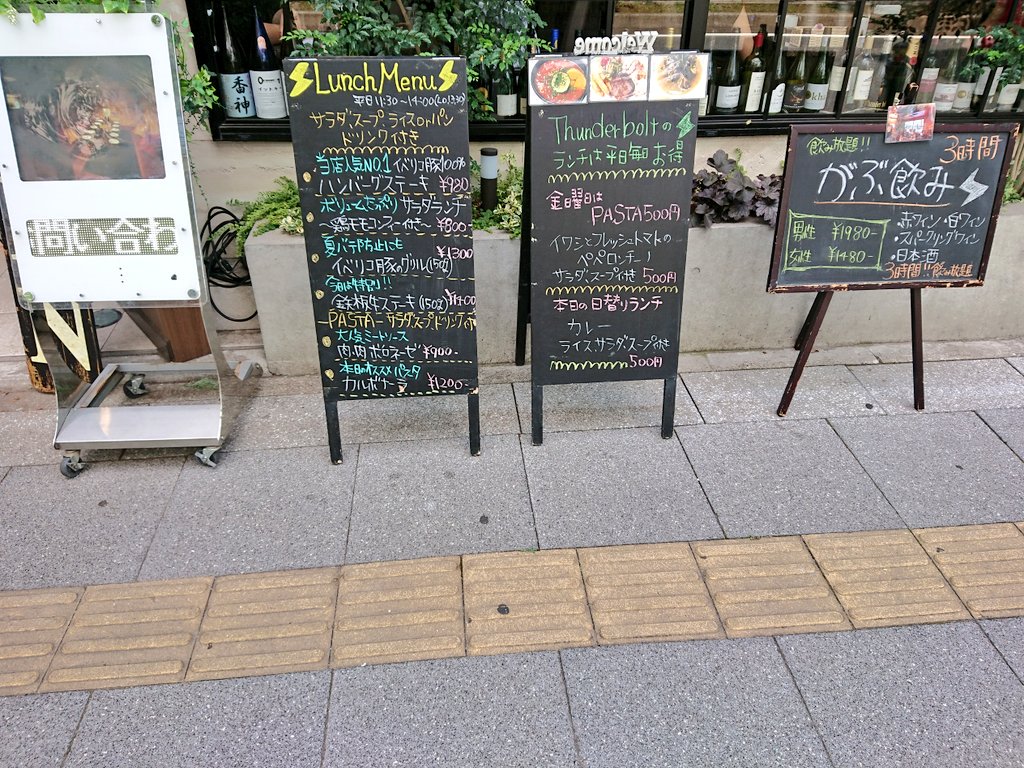 問い合わ
Lunch Menu
平日11:30~14:00(L.O 13:30)
サラダ、スープ ライス or パン
ドリンク付き
当店人気NO.1 イベリコ豚100%
ハンバーグステーキ ¥980
ボリュームたっぷり サラダランチ
~鶏モモコンフィー付き~ ¥800-
夏バテ防止に ¥1300
イベリコ豚のグリル(150g)
今日は特別!!
牛ステーキ(150g) ¥1400
PASTA - サラダ、スープ、ドリンク付
大人気ミートソース
肉肉ボロネーゼ ¥900-
本日のオススメパスタ
カルボナーラ ¥1200-
Welcome
Thunderboltの
ランチは平日毎日お得
金曜日は
PASTA 500円
イワシとフレッシュトマトの
ペペロンチーノ
サラダ、スープ付き 500円
本日の日替りランチ
カレー
ライス、サラダ、スープ付き
500円
飲み放題!! 3時間
がぶ飲み
男性 ¥1980-
女性 ¥1480-
・赤ワイン・白ワイン
・スパークリングワイン
・日本酒
3時間!!飲み放題
香神